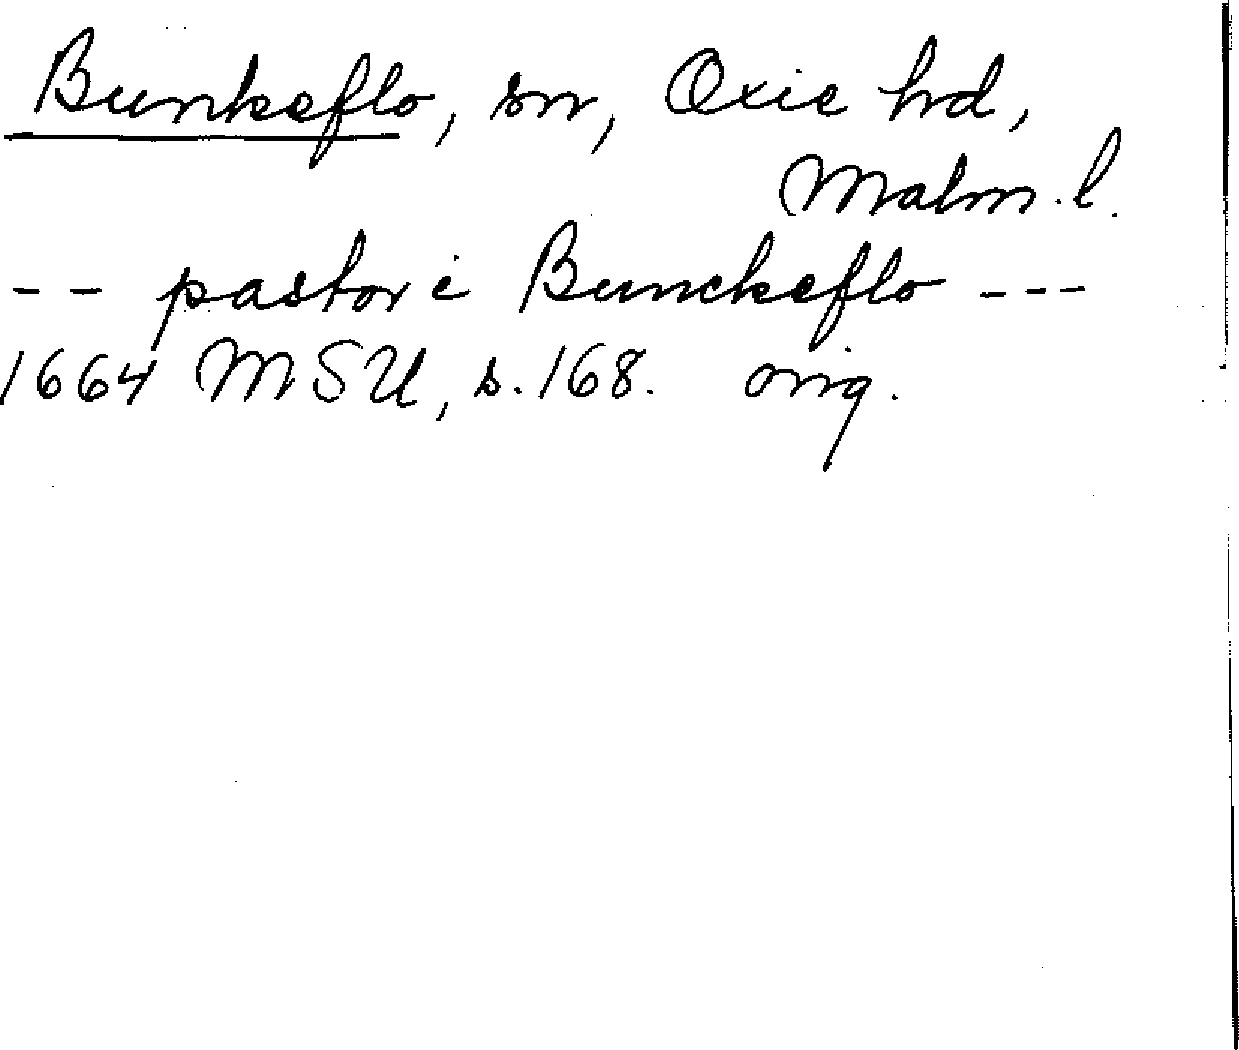 Bunkeflo, sn, Oxie hd,
Malm. l.
-- pastor i Bunckeflo ---
1664 MSU, s. 168. orig.